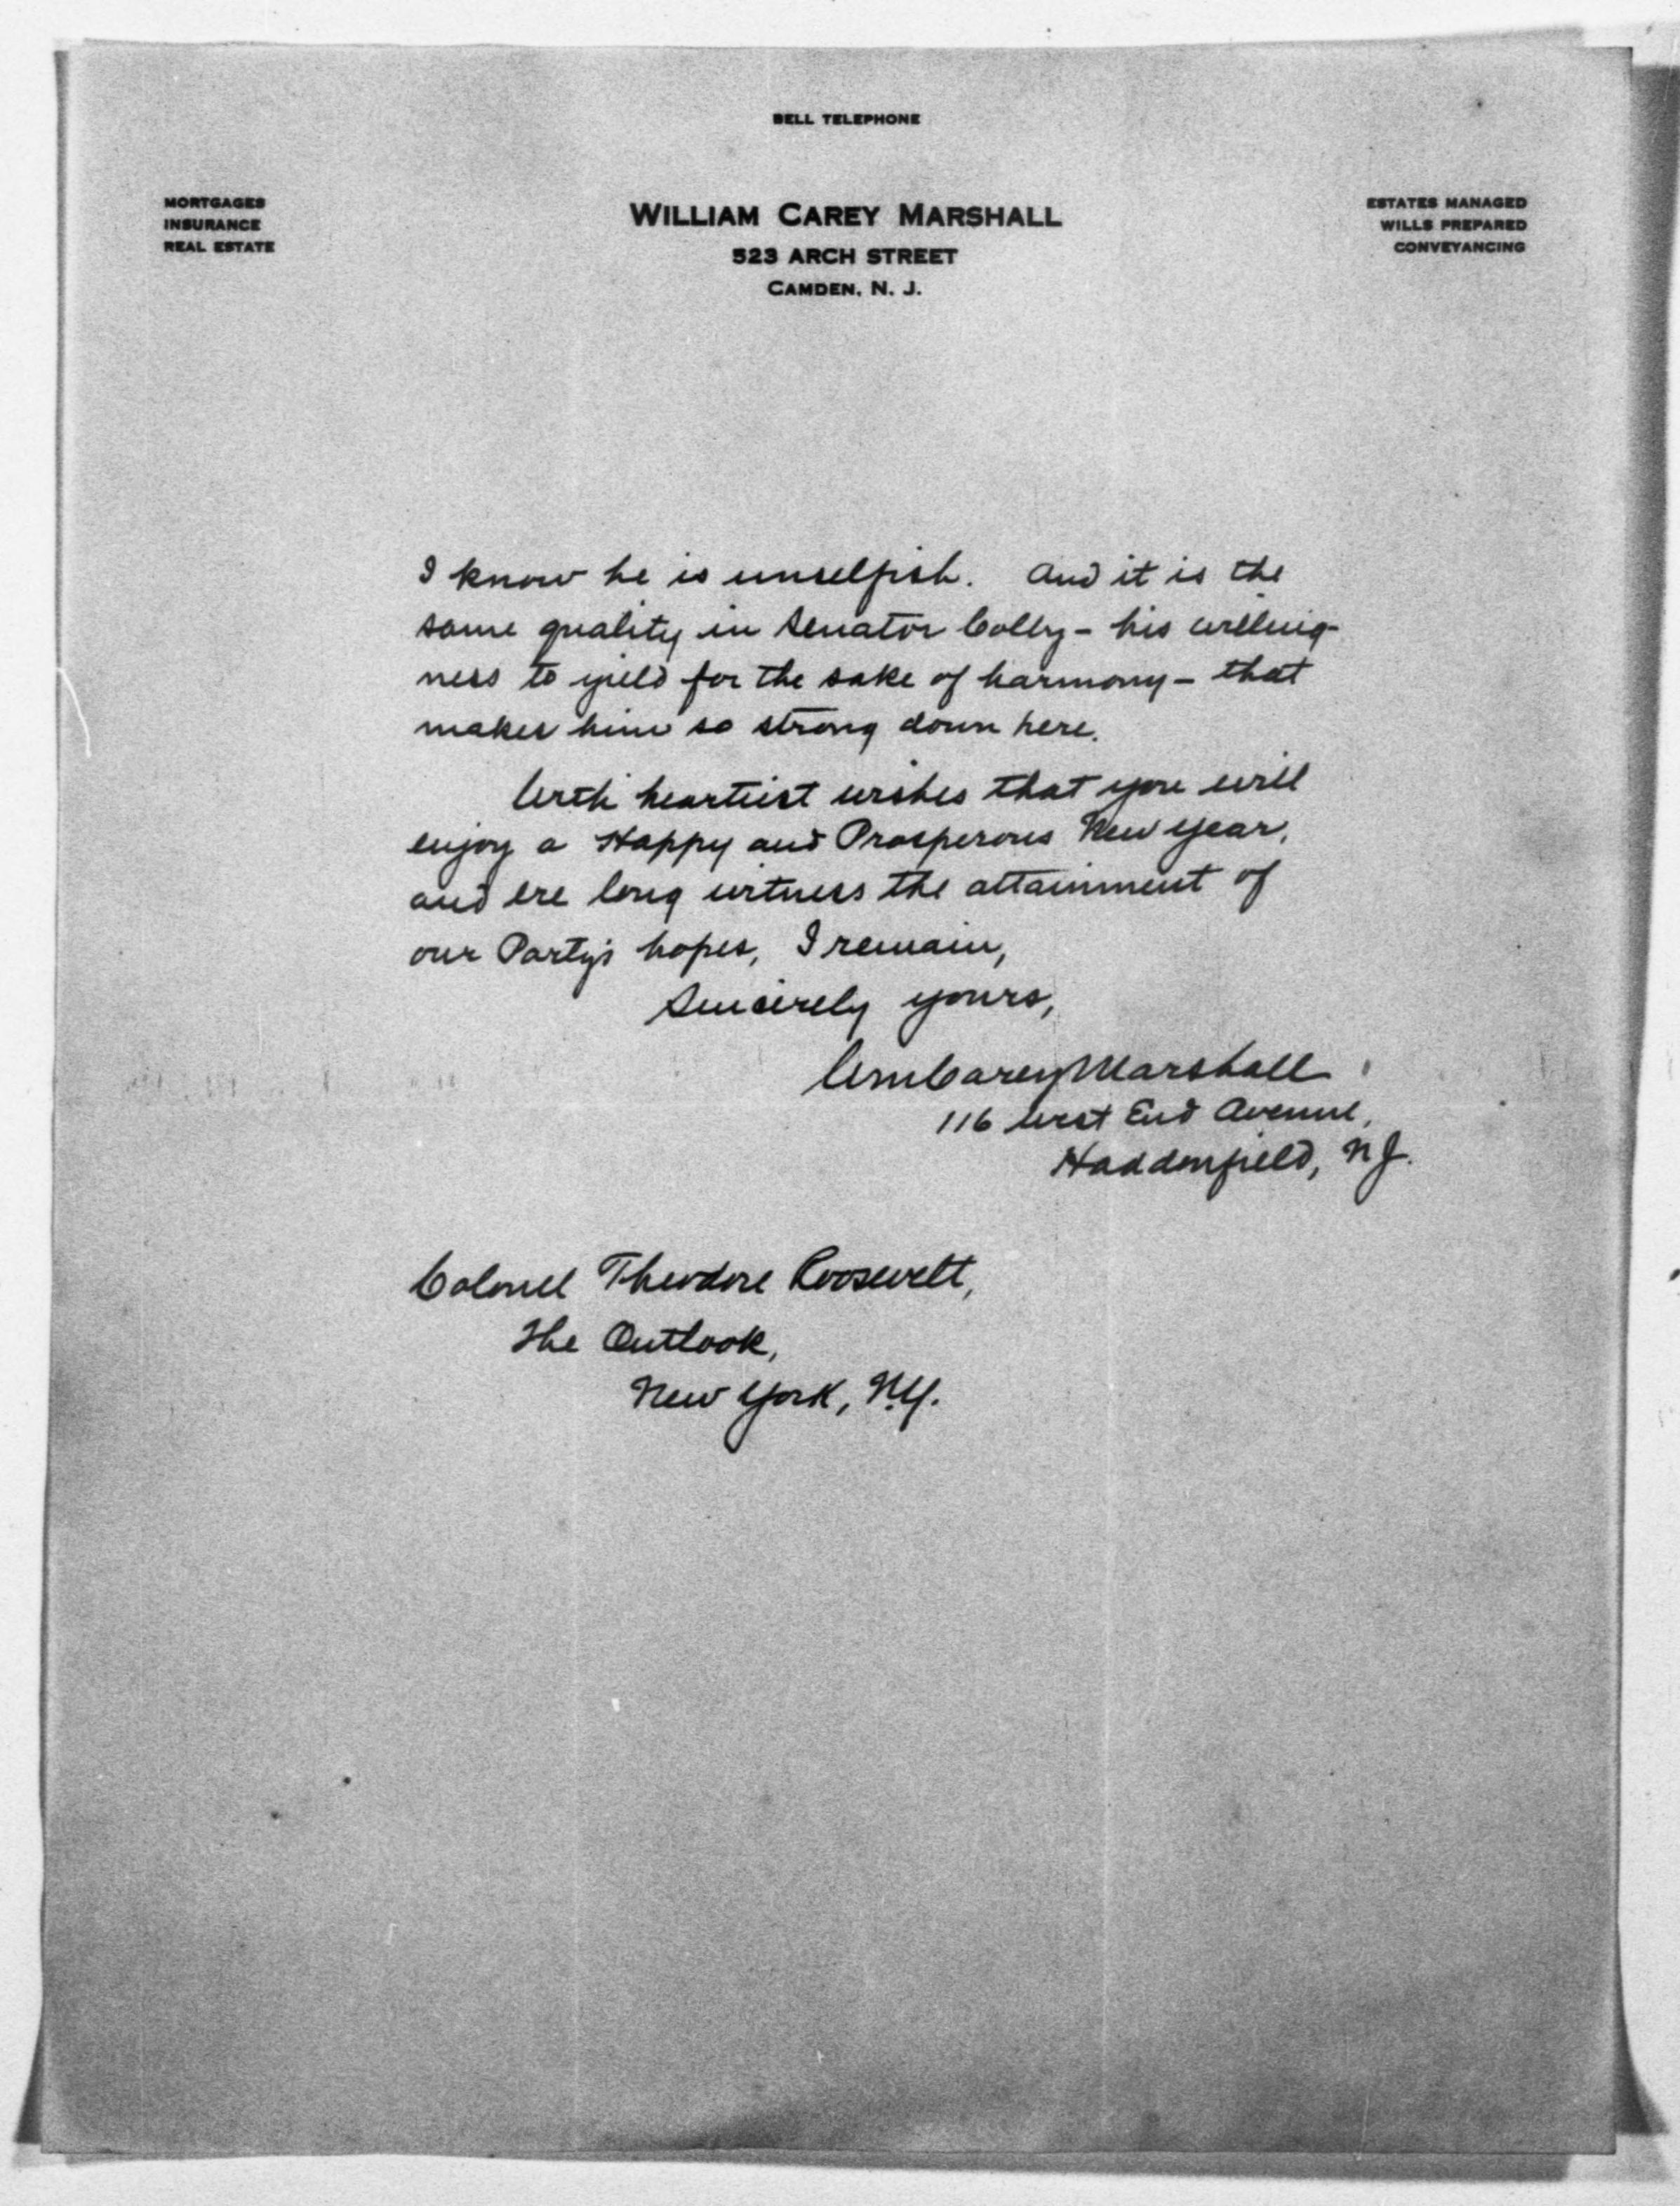 BELL TELEPHONE
MORTGAGES
INSURANCE
REAL ESTATE
WILLIAM CAREY MARSHALL
523 ARCH STREET
CAMDEN, N. J.
ESTATES MANAGED
WILLS PREPARED
CONVEYANCING
I know he is unselfish. And it is the
same quality in Senator Colby - his willing-
ness to yield for the sake of harmony - that
makes him so strong down here.
With heartiest wishes that you will
enjoy a Happy and Prosperous New Year,
and ere long witness the attainment of
our Party's hopes, I remain,
Sincerely yours,
Wm Carey Marshall
116 West End Avenue,
Haddonfield, N.J.
Colonel Theodore Roosevelt,
The Outlook,
New York, N.Y.